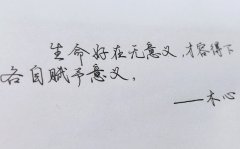 生命好在无意义，才容得下
各自赋予意义。
——木心